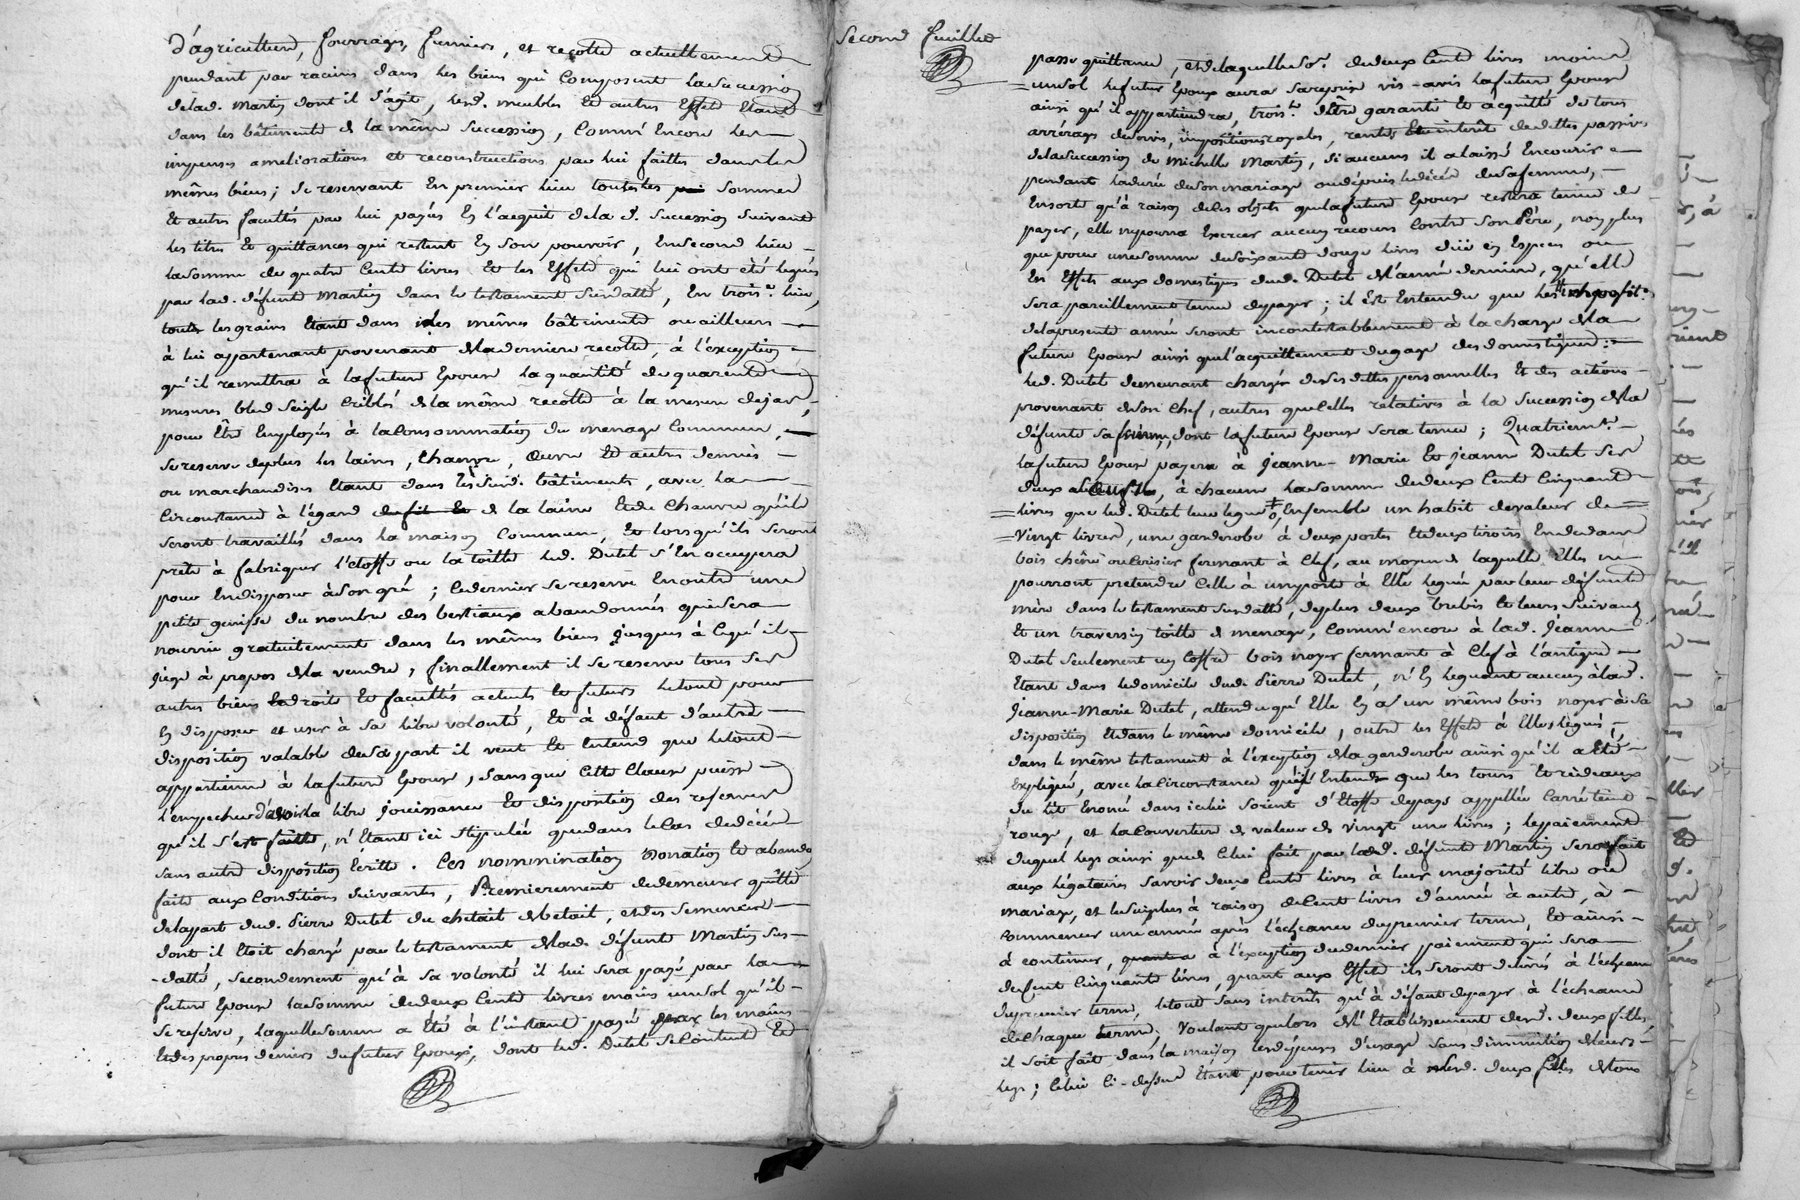 d'agriculture, fourrages, fumiers, et recolte actuellement
pendant par racines dans les biens qui composent la succession
de lad. Martin dont il s'agit, lesd. meubles et autres effets etant
dans les bâtiments de la même succession, comm' encore les
impenses ameliorations et reconstructions par lui faittes dans les
mêmes biens; se reservant en premier lieu toutes les sommes
et autres facultés par lui payés en l'acquit de la d. succession suivant
les titres et quittances qui restent en son pouvoir, en second lieu
la somme de quatre cents livres et les effets qui lui ont été legués
par lad. défunte Martin dans le testament susdatté, en trois.e lieu,
touts les grains etant dans les mêmes bâtiments ou ailleurs
à lui appartenant provenant de la derniere recolte, à l'exception
qu'il remettra à la future epouse la quantité de quarente
mesures bled seigle criblés de la même recolte à la mesure de jar,
pour être employés à la consommation du menage commun,
se reserve de plus les laines, chanvre, œuvre et autres denrées
ou marchandises etant dans lesd. bâtiments, avec la
circonstance à l'égard de la laine et de chanvre qu'ils
seront travaillés dans la maison commune, et lorsqu'ils seront
prêts à fabriquer l'etoffe ou la toille led. Dutel s'en occupera
pour en disposer à son gré; ce dernier se reserve encoire une
petite genisse du nombre des bestiaux abandonnés qui sera
nourrie gratuitement dans les mêmes biens jusques à ce qu'il
juge à propos de la vendre, finallement il se reserve tous ses
autres biens droits et facultés actuels et futurs le tout pour
en disposer et user à sa libre volonté, et à défaut d'autre
disposition valable de sa part il veut et entend que le tout
appartienne à la future epouse, sans que cette clause puisse
l'empecher d'avoir la libre jouissance et disposition des reserves
qu'il s'est faitte, n'etant ici stipulée que dans le cas de décés
sans autre disposition ecritte. Ces nommination donation et abandon
faite aux conditions suivantes, Premierement de demeurer quitte
de la part dud. Pierre Dutel du chetail, et des semences
dont il etoit chargé par le testament de lad. défunte Martin sus-
-datté, secondement qu'à sa volonté il lui sera payé par la
future epouse la somme de deux cents livres moins un sol qu'il
se reserve, laquelle somme a été à l'instant payé par les mains
et des propres deniers du futur epoux, dont led. Dutel se contente et
Second feuillet
passe quittance, et de laquelle so.e de deux cents livres moins
un sol le futur epoux aura sa reprise vis-avis la future epouse
ainsi qu'il appartiendra, trois.t d'être garanti et acquitté de tous
arrérages de servis, impositions royales, rentes et interêt de dettes passives
de la succession de Michelle Martin, si aucuns il a laissé encourir
pendant la durée de son mariage ou depuis le décés de sa femme,
ensorte qu'à raison de ces objets que la future epouse restera tenue de
payer, elle ne pourra exercer aucun recours contre son Père, non plus
que pour une somme de soixante douze livres düe en especes ou
en effets aux domestiques dud. Dutel de l'année derniere, qu'elle
sera pareillement tenue de payer; il est entendu que les
de la presente année seront incontestablement à la charge de la
future epouse ainsi que l'acquittement du gage des domestiques;
led. Dutel demeurant chargé de ses dettes personnelles et des actions
provenant de son chef, autres que celles relatives à la succession de la
défunte sa femme, dont la future epouse sera tenue; Quatriem.t
la future epouse payera à Jeanne-Marie et Jeanne Dutel ses
deux, à chacune la somme de deux cents cinquante
livres que led. Dutel leur legue, ensemble un habit de valeur de
vingt livres, une garderobe à deux portes et deux tiroirs en dedans
bois chêne ou cerisier fermant à clef, au moyen de laquelle elles ne
pourront pretendre celle à une porte à elle leguée par leur défunte
mère dans le testament susdatté, de plus deux brebis et leurs suivans
et un traversin toille de menage, comm' encore à lad. Jeanne
Dutel seulement un coffre bois noyer fermant à clef à l'antique
etant dans le domicile dud. Pierre Dutel, n'en leguant aucun à lad.
Jeanne-Marie Dutel, attendu qu'elle en a un même bois noyer à sa
disposition et dans le même domicile, outre les effets à elles légués
dans le même testament à l'exception de la garderobe ainsi qu'il a été
expliqué, avec la circonstance qu'il entend que les tours et rideaux
du lit enoncé dans icelui soient d'etoffe de pays appellée carré teint
rouge, et la couverture de valeur de vingt une livres; le paiement
duquel legs ainsi que de celui fait par lad. défunte Martin sera fait
aux légataires savoir deux cents livres à leur majorité libre ou
mariage, et le surplus à raison de cent livres d'année à autre, à
commencer une année après l'echeance du premier terme, et ainsi
à continuer, à l'exception du dernier paiement qui sera
de cent cinquante livres, quant aux effets ils seront delivrés à l'echeance
du premier terme, le tout sans interêts qu'à défaut de payer à l'echeance
de chaque terme. Voulant que lors de l'etablissement desd. deux filles,
il soit fait dans la maison les dépenses d'usage sans diminution de leurs
legs; celui ci-dessus etant pour tenir lieu à sesd. deux filles de tous